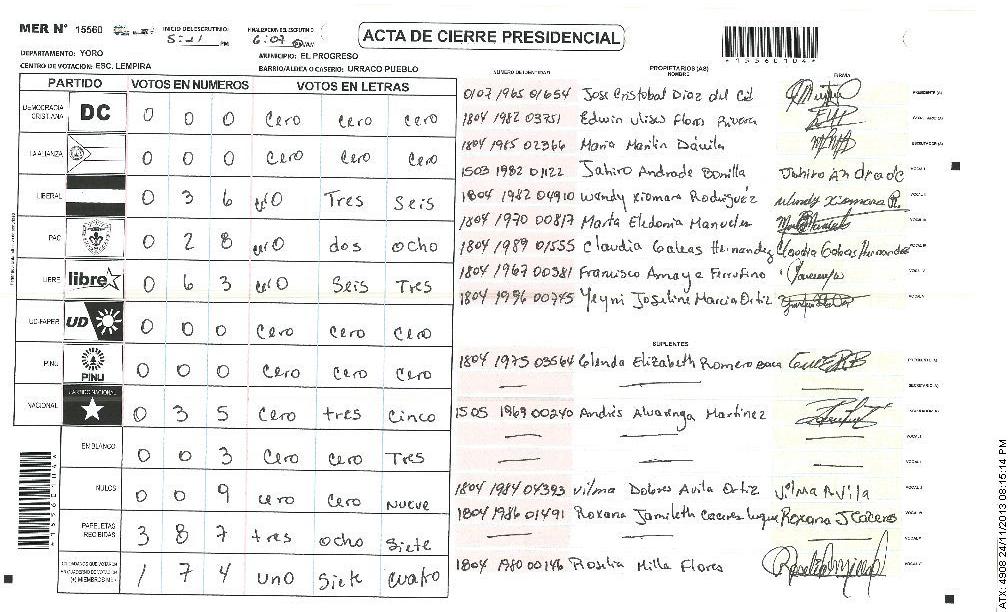 MER N° 15560
INICIO DEL ESCRUTINIO 5:21 PM
FINALIZACION DEL ESCRUTINIO 6:07
ACTA DE CIERRE PRESIDENCIAL
*15560104*
DEPARTAMENTO: YORO
MUNICIPIO: EL PROGRESO
CENTRO DE VOTACION: ESC. LEMPIRA
BARRIO/ALDEA O CASERIO: URRACO PUEBLO
PARTIDO VOTOS EN NUMEROS VOTOS EN LETRAS
DEMOCRACIA CRISTIANA DC 0 0 0 Cero Cero Cero
LA ALIANZA 0 0 0 Cero Cero Cero
LIBERAL 0 3 6 cero Tres Seis
PAC 0 2 8 cero dos ocho
LIBRE libre 0 6 3 cero Seis Tres
UD-FAPER UD 0 0 0 Cero Cero Cero
PINU PINU 0 0 0 Cero Cero Cero
NACIONAL PARTIDO NACIONAL 0 3 5 Cero tres cinco
EN BLANCO 0 0 3 Cero Cero Tres
NULOS 0 0 9 cero Cero Nueve
PAPELETAS RECIBIDAS 3 8 7 tres ocho Siete
1 7 4 uno Siete cuatro
NUMERO DE IDENTIDAD PROPIETARIOS (AS) NOMBRE FIRMA
0107 1965 01654 Jose Cristobal Diaz del Cid PRESIDENTE (A)
1804 1982 03751 Edwin Ulises Flores Rivera SECRETARIO (A)
1804 1985 02366 Maria Marilin Dávila ESCRUTADOR (A)
1503 1982 01122 Jahiro Andrade Bonilla Jahiro Andrade VOCAL I
1804 1982 04910 Wendy Xiomara Rodriguez Wendy Xiomara R.
1804 1970 00817 Marta Eledonia Manueles
1804 1989 01555 Claudia Galeas Hernandez Claudia Galeas Hernandez
1804 1967 00381 Francisco Amaya Firrufino
1804 1996 00745 Yeyni Joseline Marcia Ortiz
SUPLENTES
1804 1975 03564 Glenda Elizabeth Romero Baca PRESIDENTE (A)
SECRETARIO (A)
1505 1969 00240 Andrés Alvarenga Martinez ESCRUTADOR (A)
1804 1984 04393 Vilma Dolores Avila Ortiz Vilma Avila
1804 1986 01491 Roxana Jamileth Caceres Luque Roxana J Caceres
1804 1980 00146 Roselia Milla Flores
*15560104*
ATX: 4908 24/11/2013 08:15:14 PM